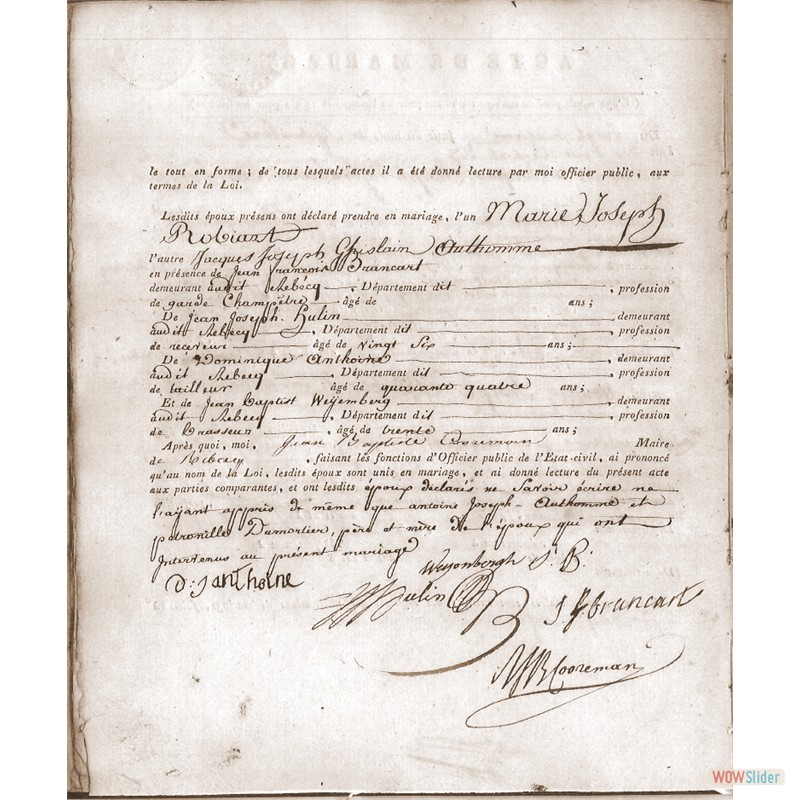 le tout en forme ; de tous lesquels actes il a été donné lecture par moi officier public, aux
termes de la Loi.
Lesdits époux présens ont déclaré prendre en mariage, l'un Marie Joseph
Robiart
l'autre Jacques Joseph Ghislain Authomme
en présence de Jean François Brancart
demeurant audit Rebecq, Département dit, profession
de garde Champêtre âgé de ans ;
De Jean Joseph Hulin demeurant
audit Rebecq, Département dit profession
de receveur âgé de vingt Six ans ;
De Dominique Anthoine demeurant
audit Rebecq, Département dit profession
de tailleur âgé de quarante quatre ans ;
Et de Jean Baptist Weyemberg, demeurant
audit Rebecq, Département dit profession
de brasseur âgé de trente ans ;
Après quoi, moi, Jean Baptiste Cooreman Maire
de Rebecq, faisant les fonctions d'Officier public de l'Etat-civil, ai prononcé
qu'au nom de la Loi, lesdits époux sont unis en mariage, et ai donné lecture du présent acte
aux parties comparantes, et ont lesdits époux declarés ne Savoir écrire ne
l'ayant appris de même que antoine Joseph Authomme et
petronille Dumortier, père et mère de l'époux qui ont
Intervenus au présent mariage
D: J anthoine
Weyenbergh J. B.
Hulin
J f. brancart
JB Cooreman
WOWSlider